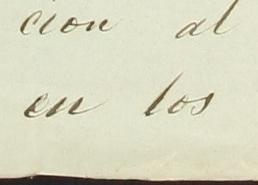 cion al
en los